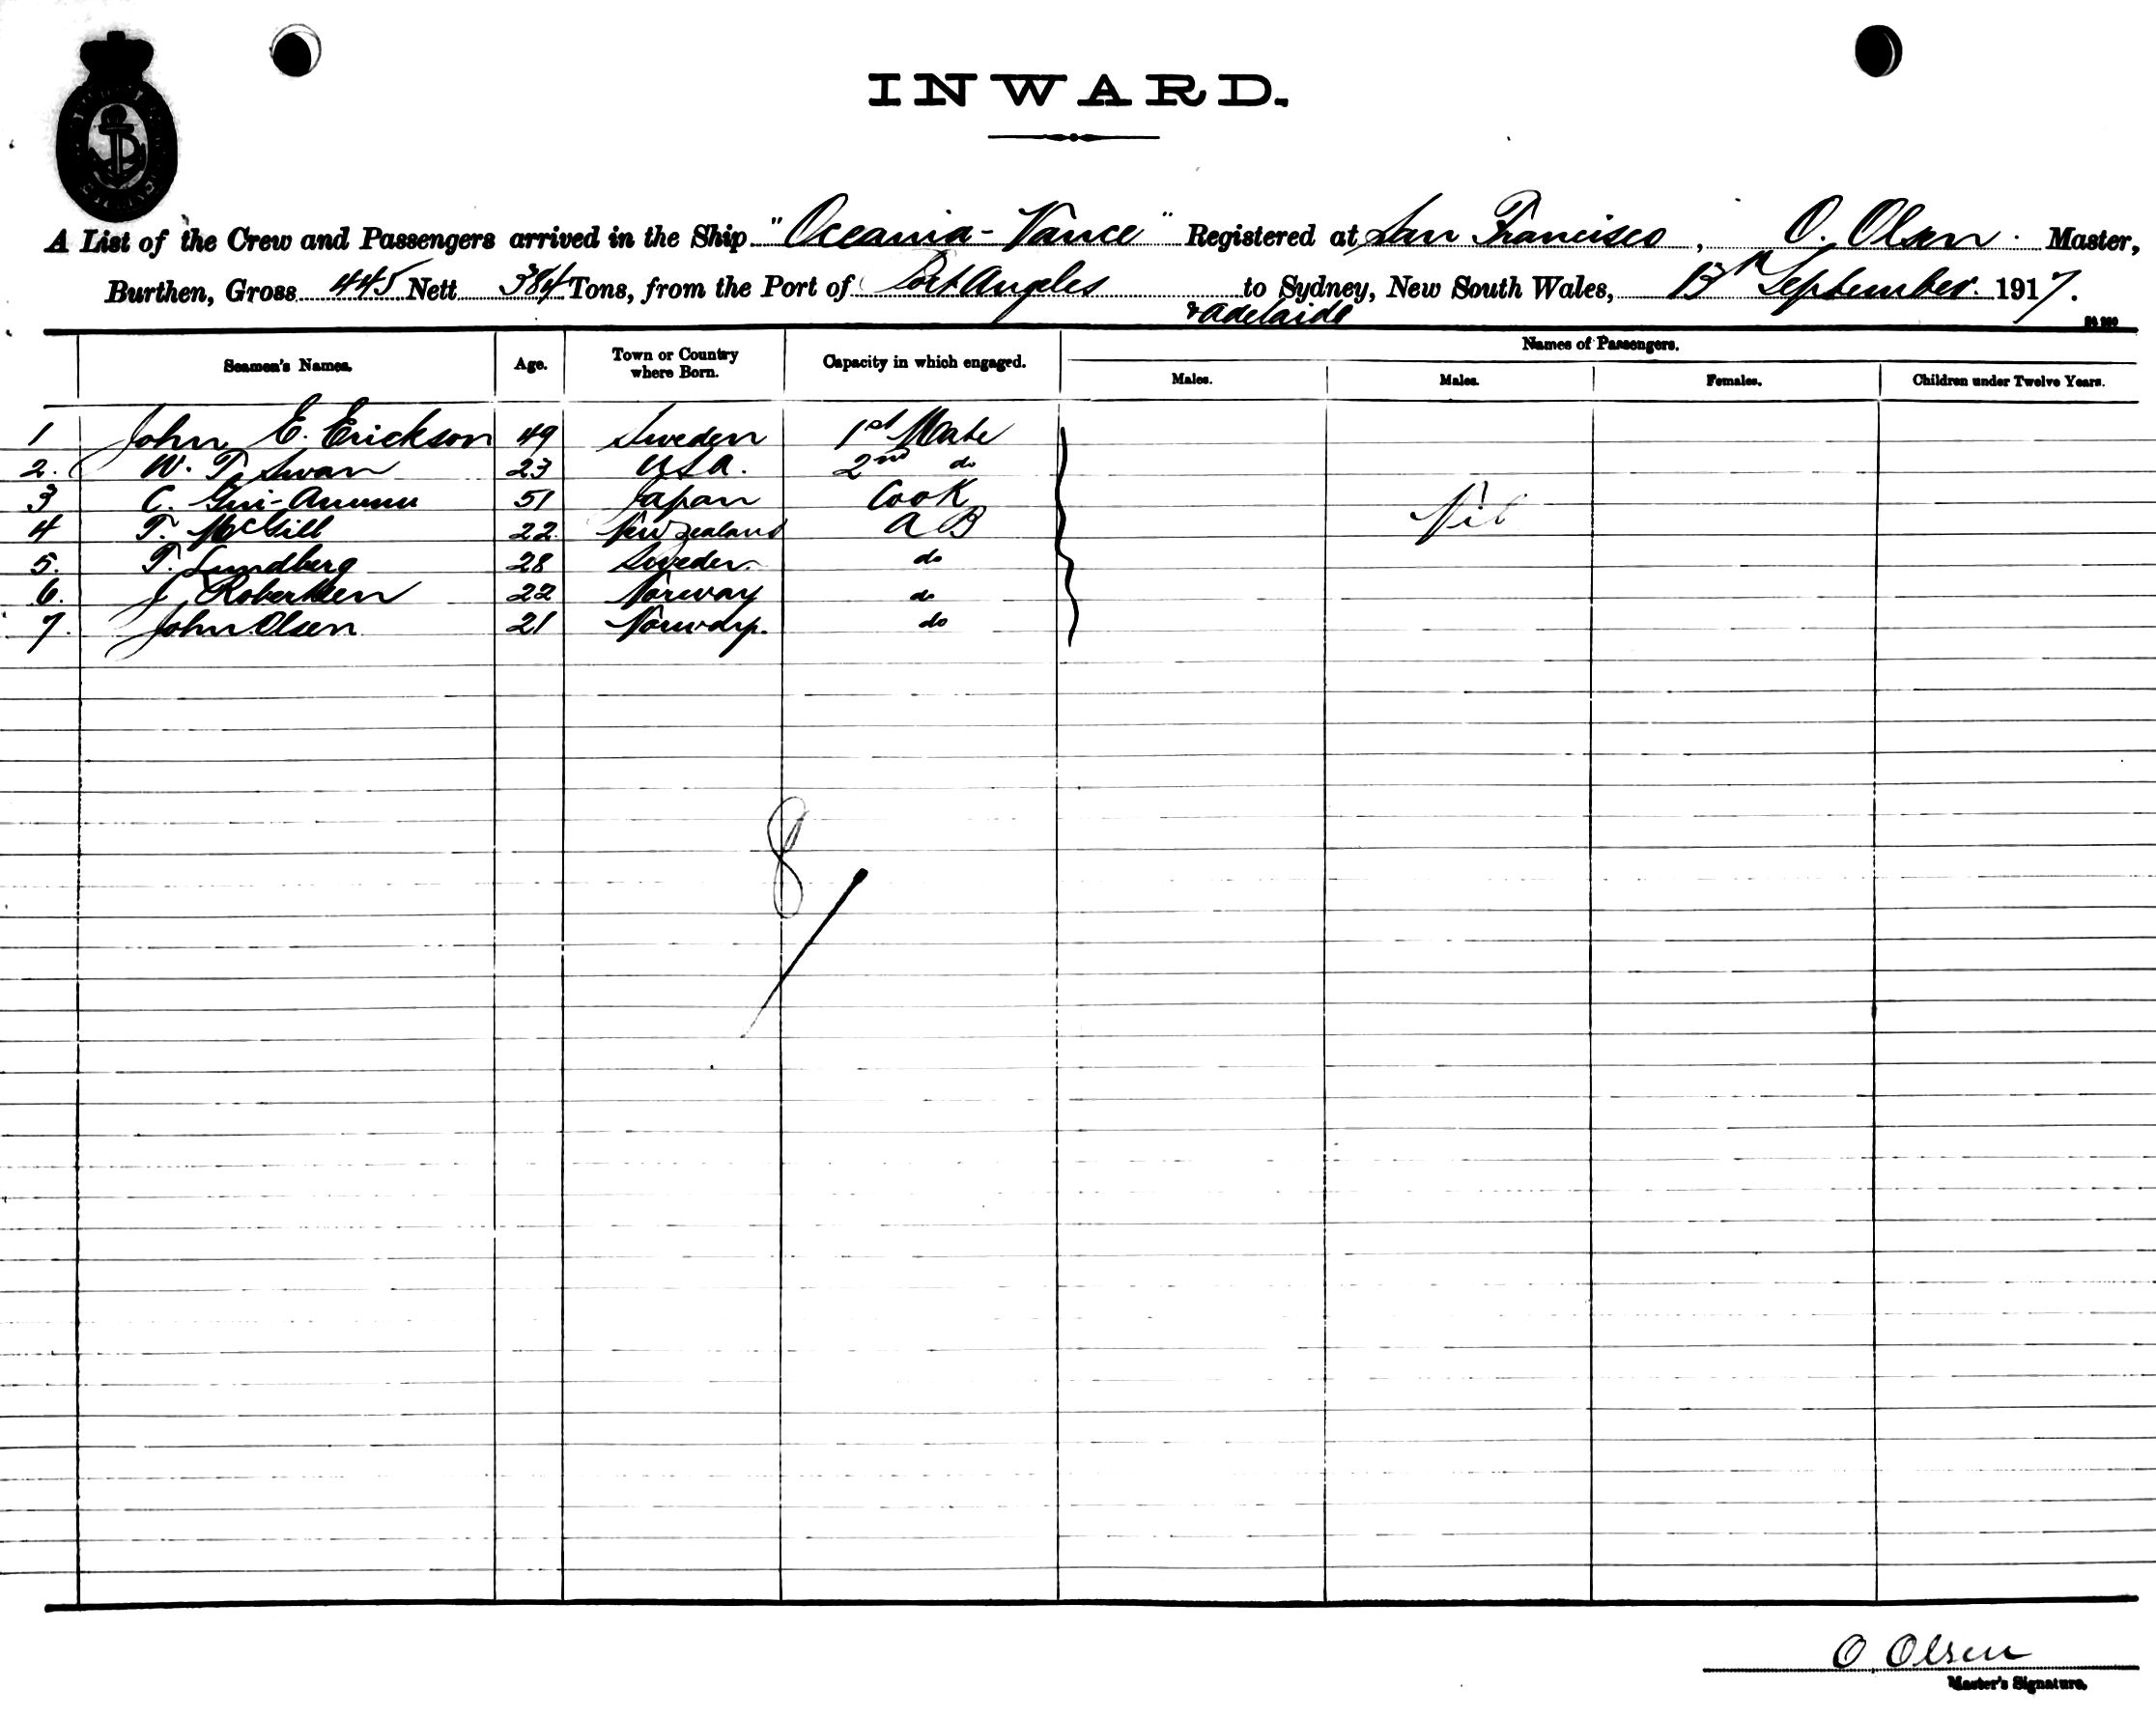 INWARD.
A List of the Crew and Passengers arrived in the Ship "Oceania-Vance" Registered at San Francisco, O. Olsen. Master,
Burthen, Gross 445 Nett 384 Tons, from the Port of Port Angeles to Sydney, New South Wales, 13th September. 1917.
& Adelaide
Seamen's Names. Age. Town or Country where Born. Capacity in which engaged. Names of Passengers.
Males. Males. Females. Children under Twelve Years.
1 John E. Erickson 49 Sweden 1st Mate
2. W. T. Swan 23 USA. 2nd do
3 C. 51 Japan Cook Nil
4 T. McGill 22 New Zealand AB
5. T. Lundberg 28 Sweden do
6. J Robertsen 22 Norway do
7. John Olsen 21 Norway. do
8
O Olsen
Master's Signature.